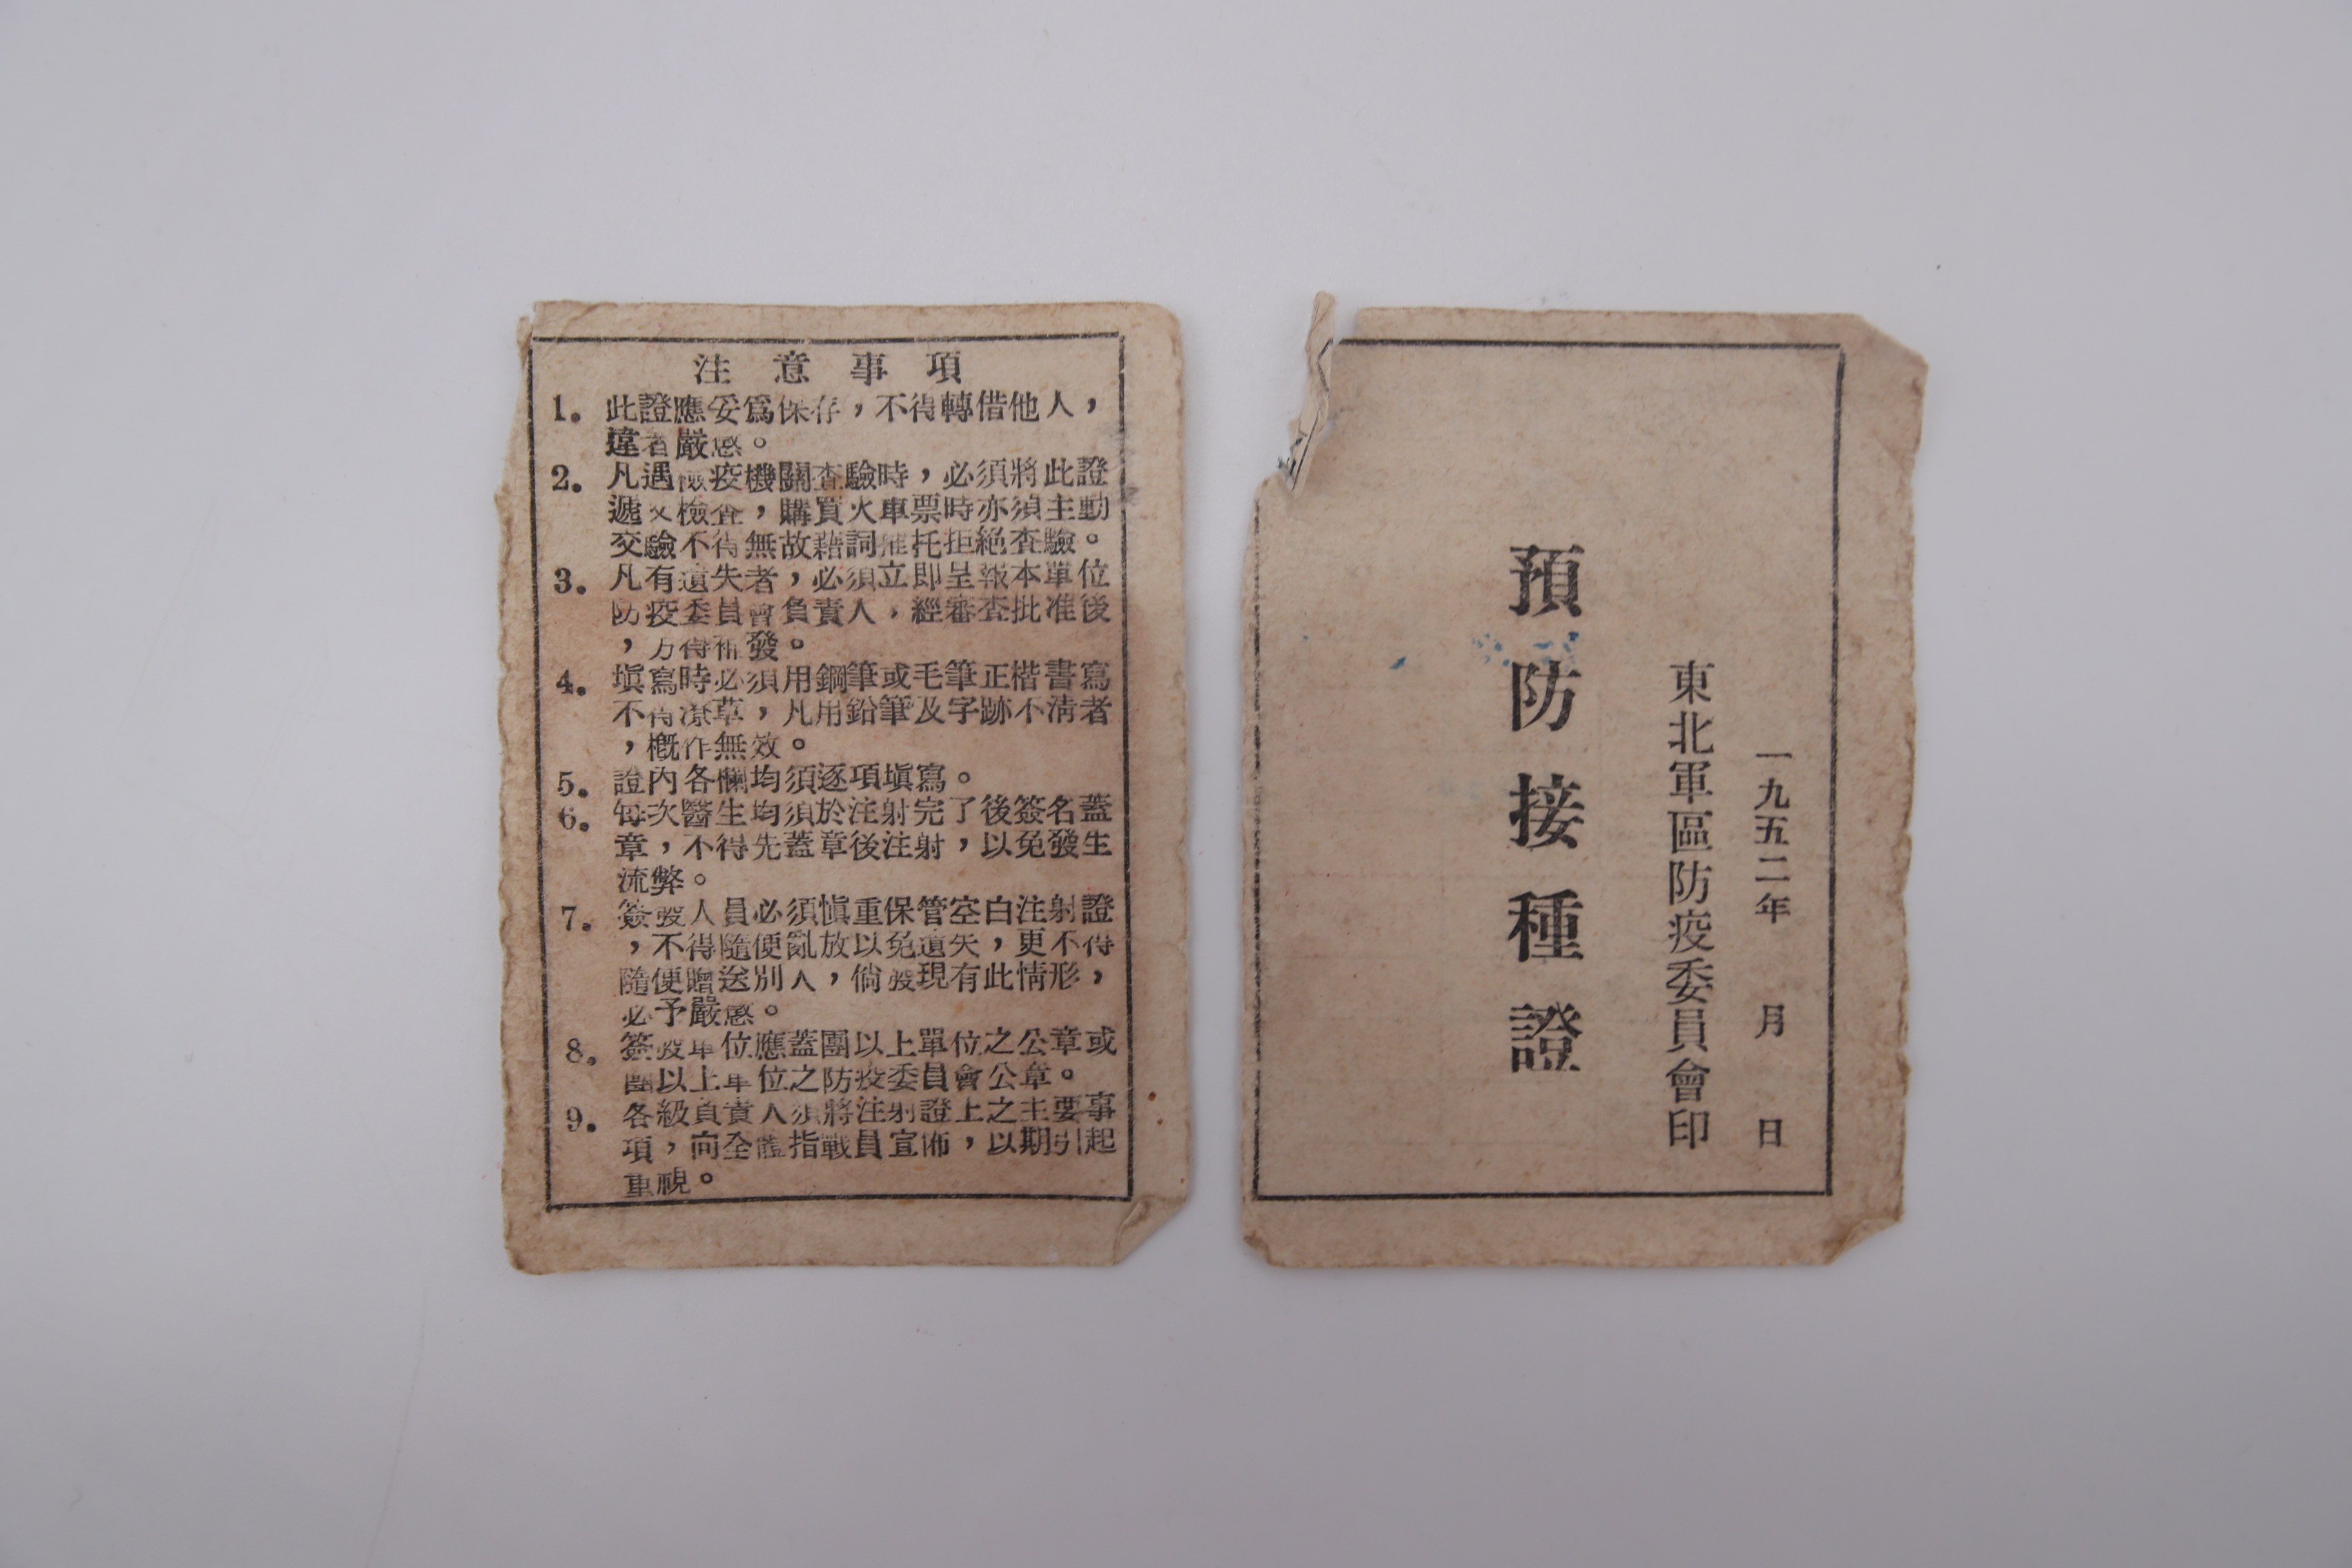 注意事項
1. 此證應妥爲保存，不得轉借他人，
違者嚴懲。
2. 凡遇檢疫機關查驗時，必須將此證
遞交檢查，購買火車票時亦須主動
交驗不得無故藉詞推托拒絕查驗。
3. 凡有遺失者，必須立即呈報本單位
防疫委員會負責人，經審查批准後
，方得補發。
4. 塡寫時必須用鋼筆或毛筆正楷書寫
不得潦草，凡用鉛筆及字跡不淸者
，槪作無效。
5. 證內各欄均須逐項塡寫。
6. 每次醫生均須於注射完了後簽名蓋
章，不得先蓋章後注射，以免發生
流弊。
7. 簽發人員必須愼重保管空白注射證
，不得隨便亂放以免遺失，更不得
隨便贈送別人，倘發現有此情形，
必予嚴懲。
8. 簽發單位應蓋團以上單位之公章或
團以上單位之防疫委員會公章。
9. 各級負責人須將注射證上之主要事
項，向全體指戰員宣佈，以期引起
重視。
一九五二年 月 日
東北軍區防疫委員會印
預防接種證